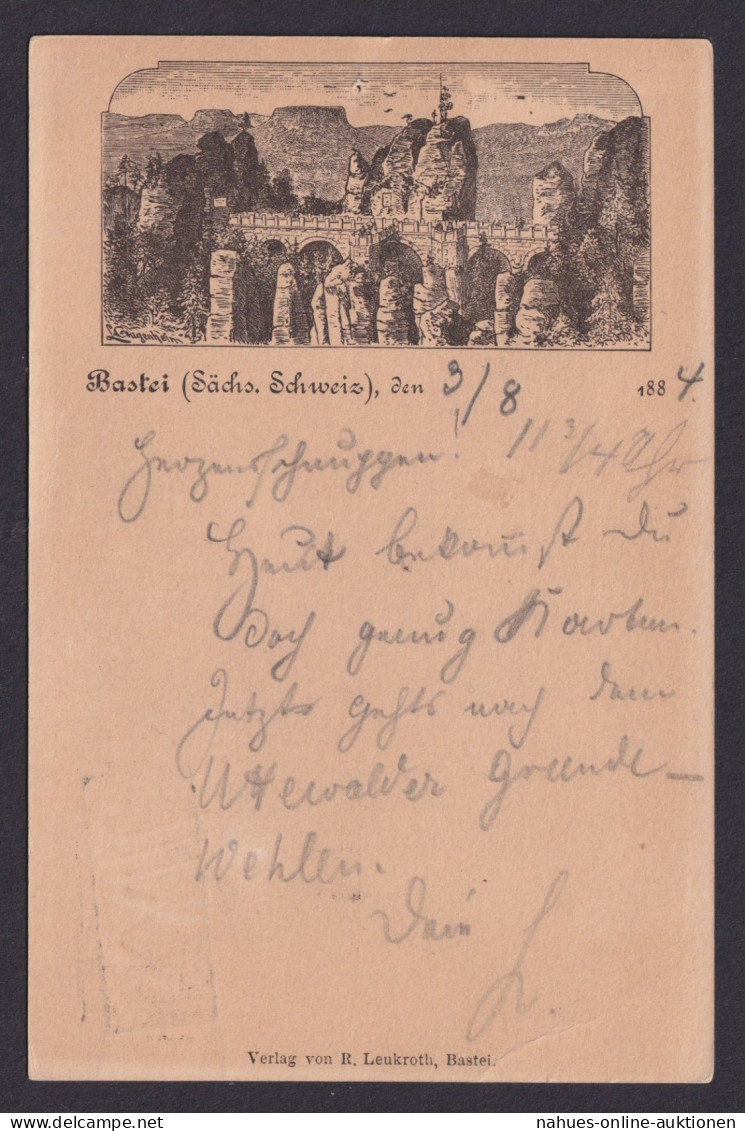 Bastei (Sächs. Schweiz), den 3/8 1884.
Herzensschnuppen! 11 3/4 Uhr
Heut bekom̅st Du
doch genug Karten.
Jetzt gehts nach dem
Uttewalder Grunde –
Wehlen.
Dein L.
Verlag von R. Leukroth, Bastei.
nahues-online-auktionen